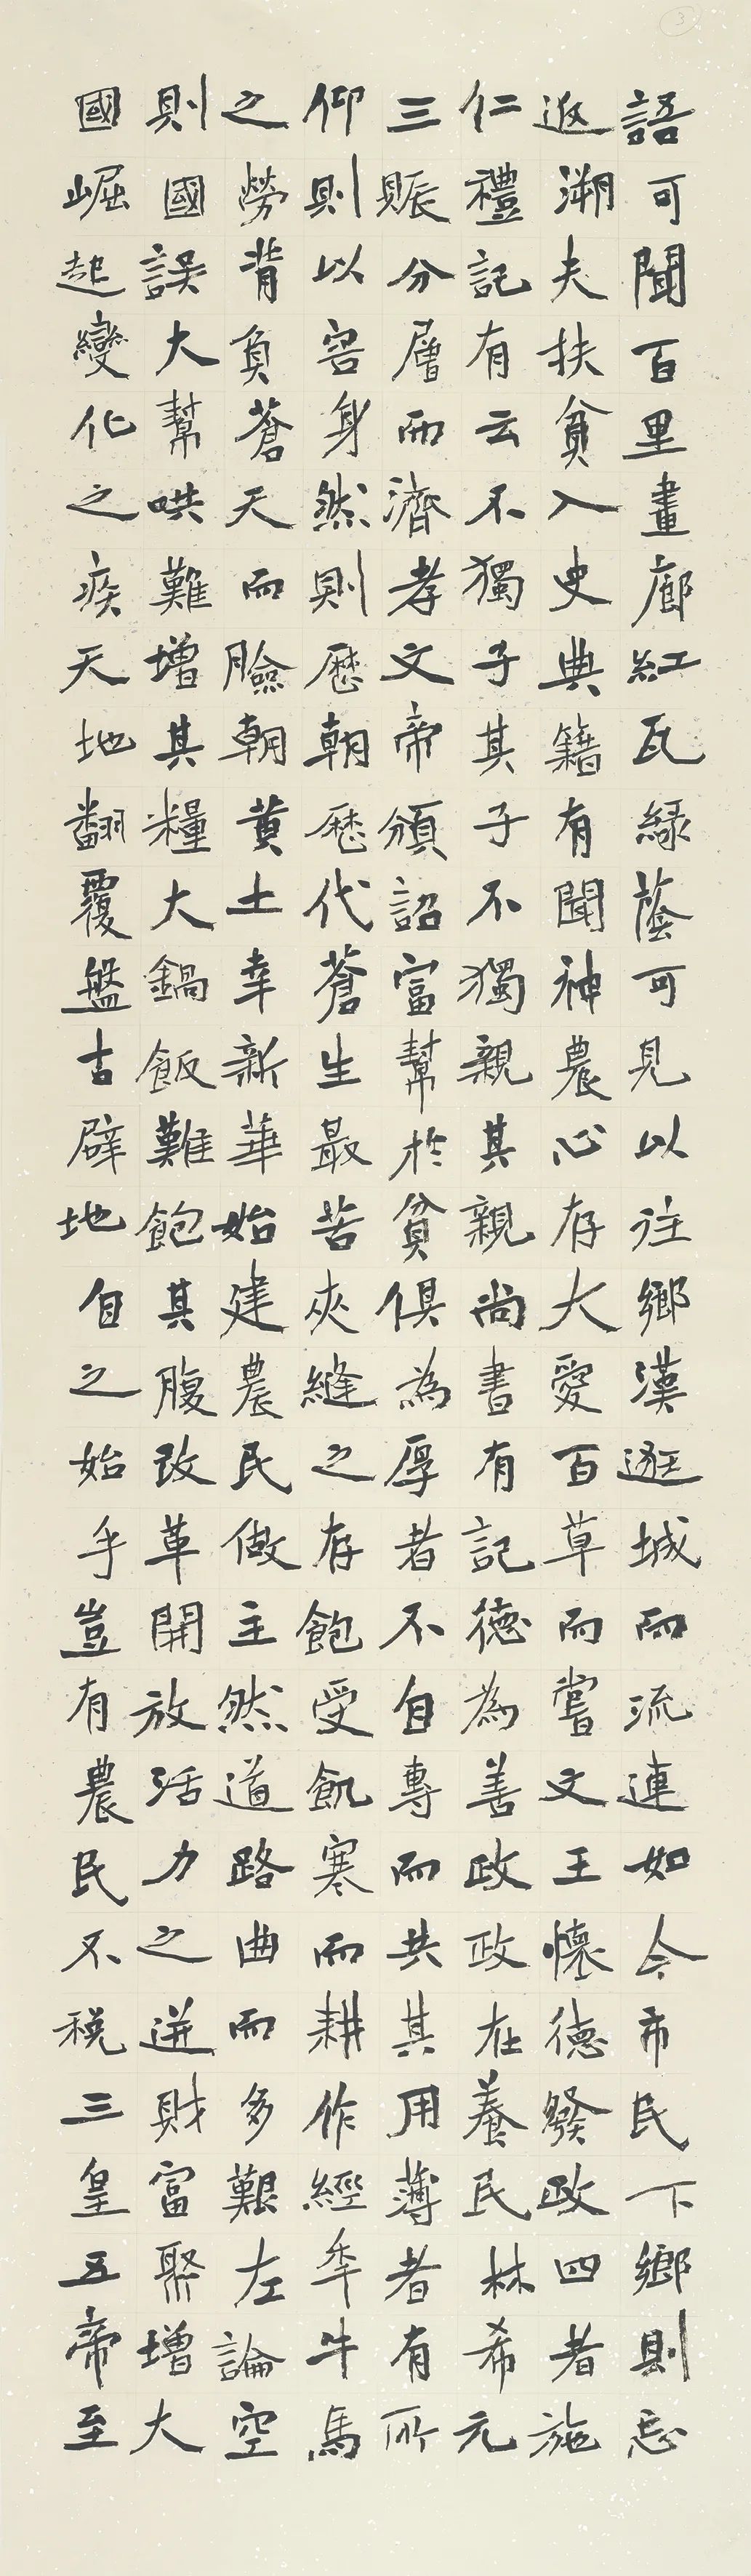 3
語可聞百里畫廊紅瓦緑蔭可見以往鄉漢逛城而流連如今市民下鄉則忘
返溯夫扶貧入史典籍有聞神農心存大愛百草而嘗文王懷德發政四者施
仁禮記有云不獨子其子不獨親其親尚書有記德為善政政在養民林希元
三賑分層而濟孝文帝頒詔富幫於貧俱為厚者不自專而共其用薄者有所
仰則以容身然則歷朝歷代蒼生最苦夾縫之存飽受飢寒而耕作經年牛馬
之勞背負蒼天而臉朝黄土幸新華始建農民做主然道路曲而多艱左論空
則國誤大幫哄難增其糧大鍋飯難飽其腹改革開放活力之迸財富聚增大
國崛起變化之疾天地翻覆盤古辟地自之始乎豈有農民不税三皇五帝至